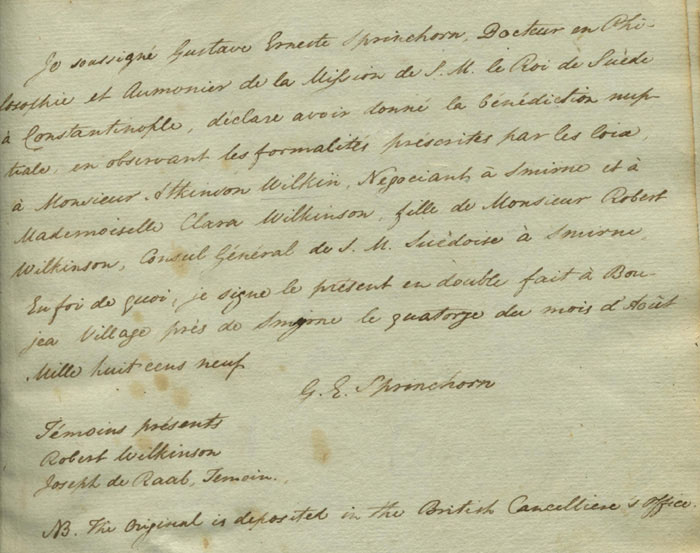 Je soussigné Gustave Erneste Sprinchorn, Docteur en Phi-
losophie et Aumonier de la Mission de S. M. le Roi de Suède
à Constantinople, déclare avoir donné la bénédiction nup-
tiale, en observant les formalités préscrites par les loix,
à Monsieur Atkinson Wilkin, Négociant à Smirne et à
Mademoiselle Clara Wilkinson, fille de Monsieur Robert
Wilkinson, Consul Général de S. M. Suèdoise à Smirne,
En foi de quoi, je signe le présent en double fait à Bou-
jea Village près de Smyrne le quatorze du mois d'Août
Mille huit cens neuf
G. E. Sprinchorn
Témoins présents
Robert Wilkinson
Joseph de Raab, Temoin.
NB. The Original is deposited in the British Cancelliere's Office.